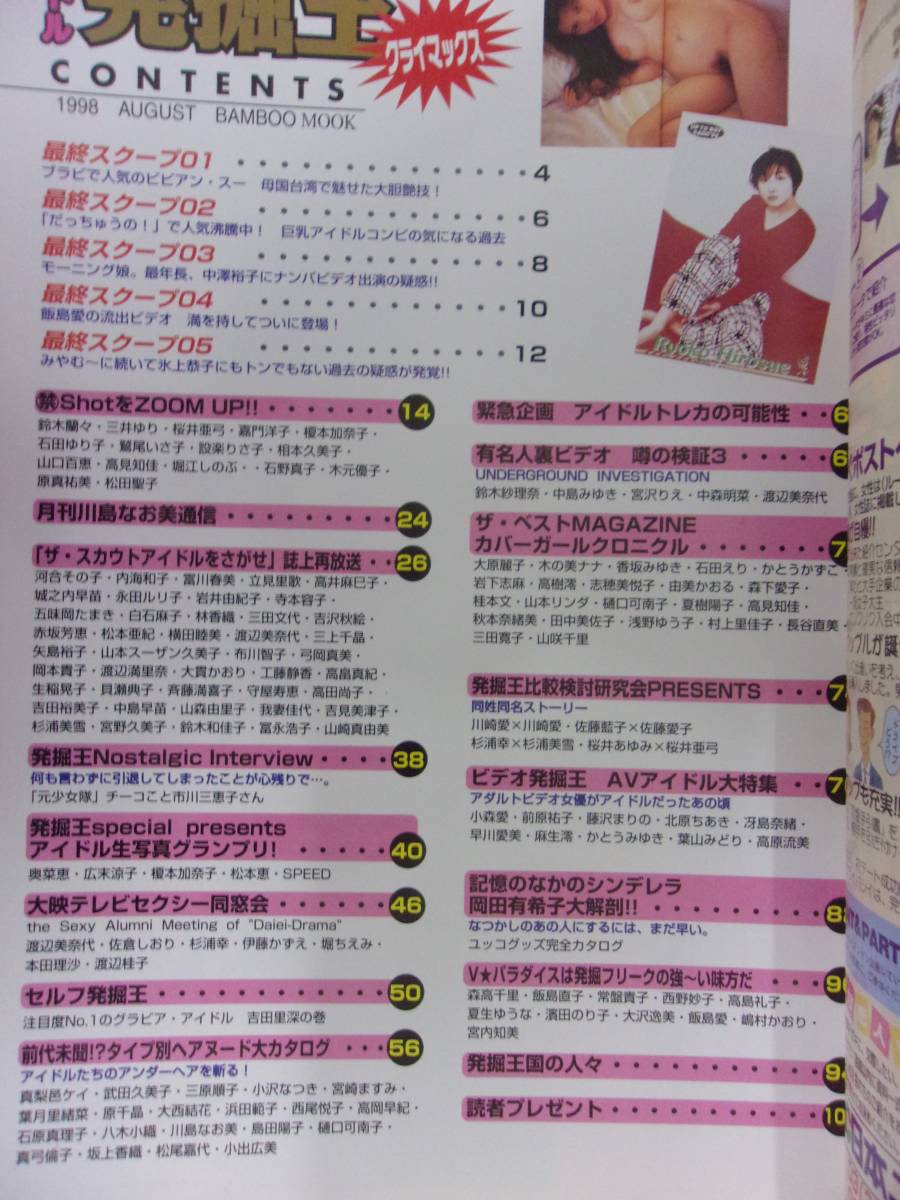 ドル 発掘王
クライマックス
CONTENTS
1998 AUGUST BAMBOO MOOK
最終スクープ01 ・・・・・・・・・・・・・ 4
ブラビで人気のビビアン・スー 母国台湾で魅せた大胆艶技！
最終スクープ02 ・・・・・・・・・・・・ 6
「だっちゅうの！」で人気沸騰中！ 巨乳アイドルコンビの気になる過去
最終スクープ03 ・・・・・・・・・・・・ 8
モーニング娘。最年長、中澤裕子にナンパビデオ出演の疑惑!!
最終スクープ04 ・・・・・・・・・・・・ 10
飯島愛の流出ビデオ 満を持してついに登場！
最終スクープ05 ・・・・・・・・・・・・ 12
みやむ〜に続いて氷上恭子にもトンでもない過去の疑惑が発覚!!
Ryoko Hirosue
禁ShotをZOOM UP!! ・・・・・・・ 14
鈴木蘭々・三井ゆり・桜井亜弓・嘉門洋子・榎本加奈子・
石田ゆり子・鷲尾いさ子・設楽りさ子・相本久美子・
山口百恵・高見知佳・堀江しのぶ・・石野真子・木元優子・
原真祐美・松田聖子
月刊川島なお美通信 ・・・・・・・・ 24
「ザ・スカウトアイドルをさがせ」誌上再放送 ・・ 26
河合その子・内海和子・富川春美・立見里歌・高井麻巳子・
城之内早苗・永田ルリ子・岩井由紀子・寺本容子・
五味岡たまき・白石麻子・林香織・三田文代・吉沢秋絵・
赤坂芳恵・松本亜紀・横田睦美・渡辺美奈代・三上千晶・
矢島裕子・山本スーザン久美子・布川智子・弓岡真美・
岡本貴子・渡辺満里奈・大貫かおり・工藤静香・高畠真紀・
生稲晃子・貝瀬典子・斉藤満喜子・守屋寿恵・高田尚子・
吉田裕美子・中島早苗・山森由里子・我妻佳代・吉見美津子・
杉浦美雪・宮野久美子・鈴木和佳子・冨永浩子・山崎真由美
発掘王Nostalgic Interview ・・・ 38
何も言わずに引退してしまったことが心残りで…。
「元少女隊」チーコこと市川三恵子さん
発掘王special presents
アイドル生写真グランプリ！ ・・・・・ 40
奥菜恵・広末涼子・榎本加奈子・松本恵・SPEED
大映テレビセクシー同窓会 ・・・・・ 46
the Sexy Alumni Meeting of "Daiei-Drama"
渡辺美奈代・佐倉しおり・杉浦幸・伊藤かずえ・堀ちえみ・
本田理沙・渡辺桂子
セルフ発掘王 ・・・・・・・・・・・ 50
注目度No.1のグラビア・アイドル 吉田里深の巻
前代未聞!?タイプ別ヘアヌード大カタログ ・・・ 56
アイドルたちのアンダーヘアを斬る！
真梨邑ケイ・武田久美子・三原順子・小沢なつき・宮崎ますみ・
葉月里緒菜・原千晶・大西結花・浜田範子・西尾悦子・高岡早紀・
石原真理子・八木小織・川島なお美・島田陽子・樋口可南子・
真弓倫子・坂上香織・松尾嘉代・小出広美
緊急企画 アイドルトレカの可能性 ・・ 6
有名人裏ビデオ 噂の検証3 ・・・・・ 6
UNDERGROUND INVESTIGATION
鈴木紗理奈・中島みゆき・宮沢りえ・中森明菜・渡辺美奈代
ザ・ベストMAGAZINE
カバーガールクロニクル ・・・・・・・ 7
大原麗子・木の実ナナ・香坂みゆき・石田えり・かとうかずこ・
岩下志麻・高樹澪・志穂美悦子・由美かおる・森下愛子・
桂本文・山本リンダ・樋口可南子・夏樹陽子・高見知佳・
秋本奈緒美・田中美佐子・浅野ゆう子・村上里佳子・長谷直美・
三田寛子・山咲千里
発掘王比較検討研究会PRESENTS ・・・ 7
同姓同名ストーリー
川崎愛×川崎愛・佐藤藍子×佐藤愛子
杉浦幸×杉浦美雪・桜井あゆみ×桜井亜弓
ビデオ発掘王 AVアイドル大特集 ・・ 7
アダルトビデオ女優がアイドルだったあの頃
小森愛・前原祐子・藤沢まりの・北原ちあき・冴島奈緒・
早川愛美・麻生澪・かとうみゆき・葉山みどり・高原流美
記憶のなかのシンデレラ
岡田有希子大解剖!! ・・・・・・・・ 8
なつかしのあの人にするには、まだ早い。
ユッコグッズ完全カタログ
V★パラダイスは発掘フリークの強〜い味方だ ・・ 9
森高千里・飯島直子・常盤貴子・西野妙子・高島礼子・
夏生ゆうな・濱田のり子・大沢逸美・飯島愛・嶋村かおり・
宮内知美
発掘王国の人々 ・・・・・・・・・・ 94
読者プレゼント ・・・・・・・・・・ 10